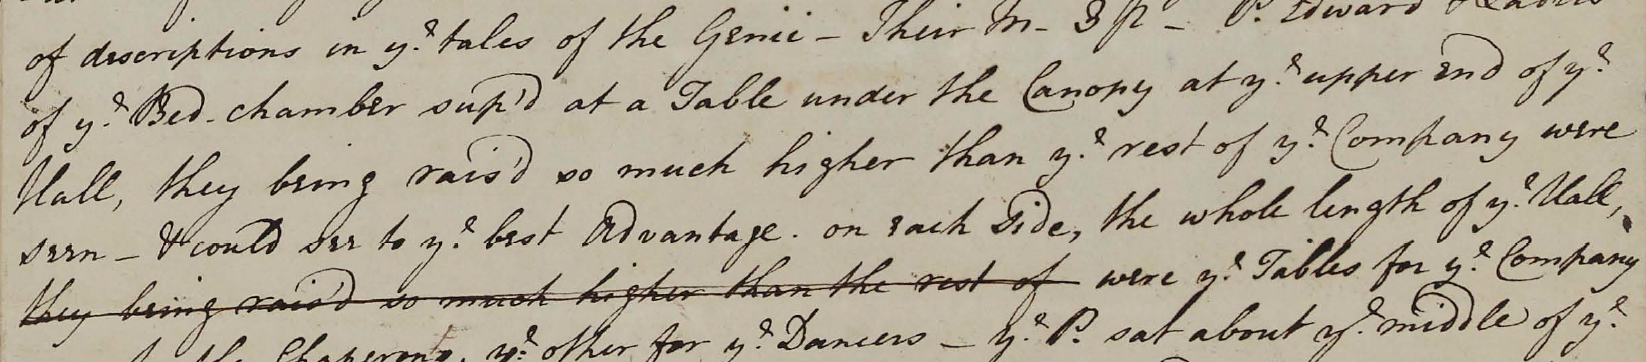 of descriptions in y.e tales of the Genii – Their M- P. Edward
of y.e Bed-chamber sup'd at a Table under the Canopy at y.e upper End of y.e
Hall, they being rais'd so much higher than y.e rest of y.e Company were
seen – & could see to y.e best Advantage. on each Side, the whole length of y.e Hall,
they being rais'd so much higher than the rest of were y.e Tables for y.e Company
the Chaperons, y.e other for y.e Dancers – y.e P. sat about y.e middle of y.e